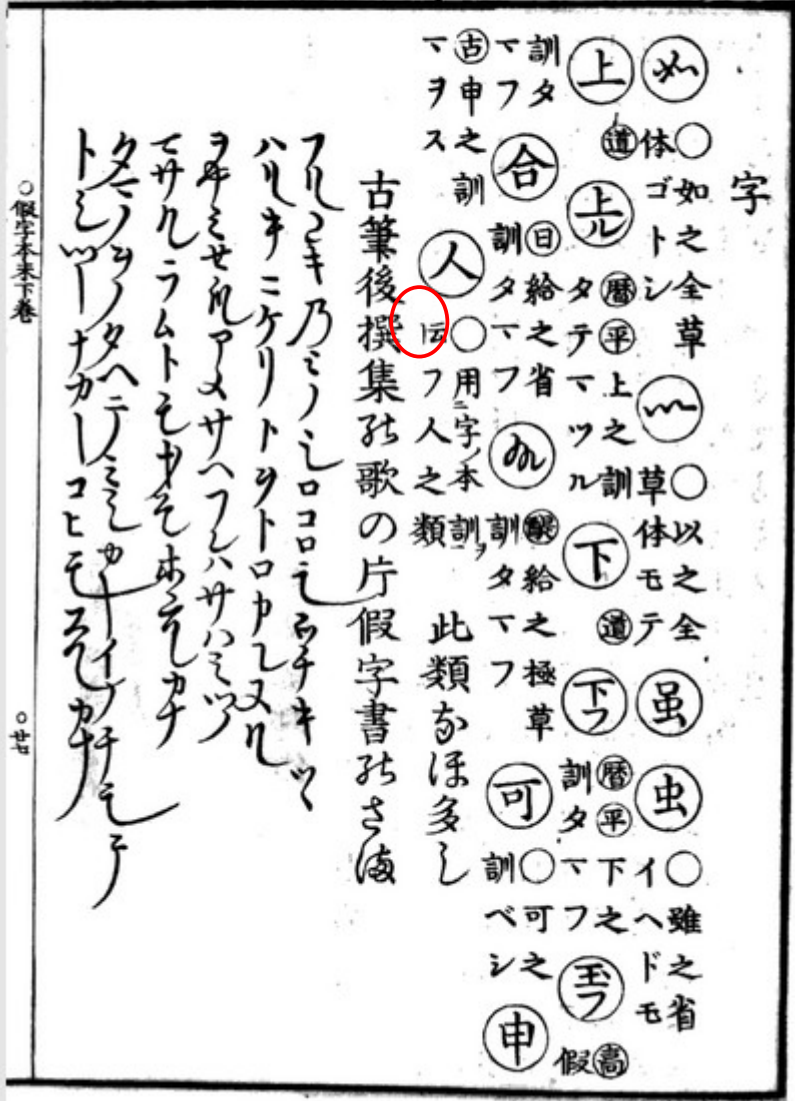 字
如 ○如之全草体ゴトシ 以 ○以之全草体モテ 虽 虫 ○雖之省イヘドモ
上 道 上ル 暦 平 上之訓タテマツル 下 道 下フ 暦 平 下之訓タマフ 玉フ 高 假
訓タマフ 合 日 給之省訓タマフ 給之極草訓タマフ 可 ○可之訓ベシ 申
古 申之訓マヲス 人 ○用ニ字ノ本訓ヲ伝フ人之類 此類なほ多し
古筆後撰集の歌の片假字書のさま
フルユキ乃ミノシロコロモウチキツヽ
ハルキニケリトヲトロカレヌル
サヘフレハサハミツノ
マサルラムトモオモホユルカナ
タマノヲノタヘテミシカキイノチモテ
トシツキナカキコヒモスルカナ
○假字本末下巻 ○廿七